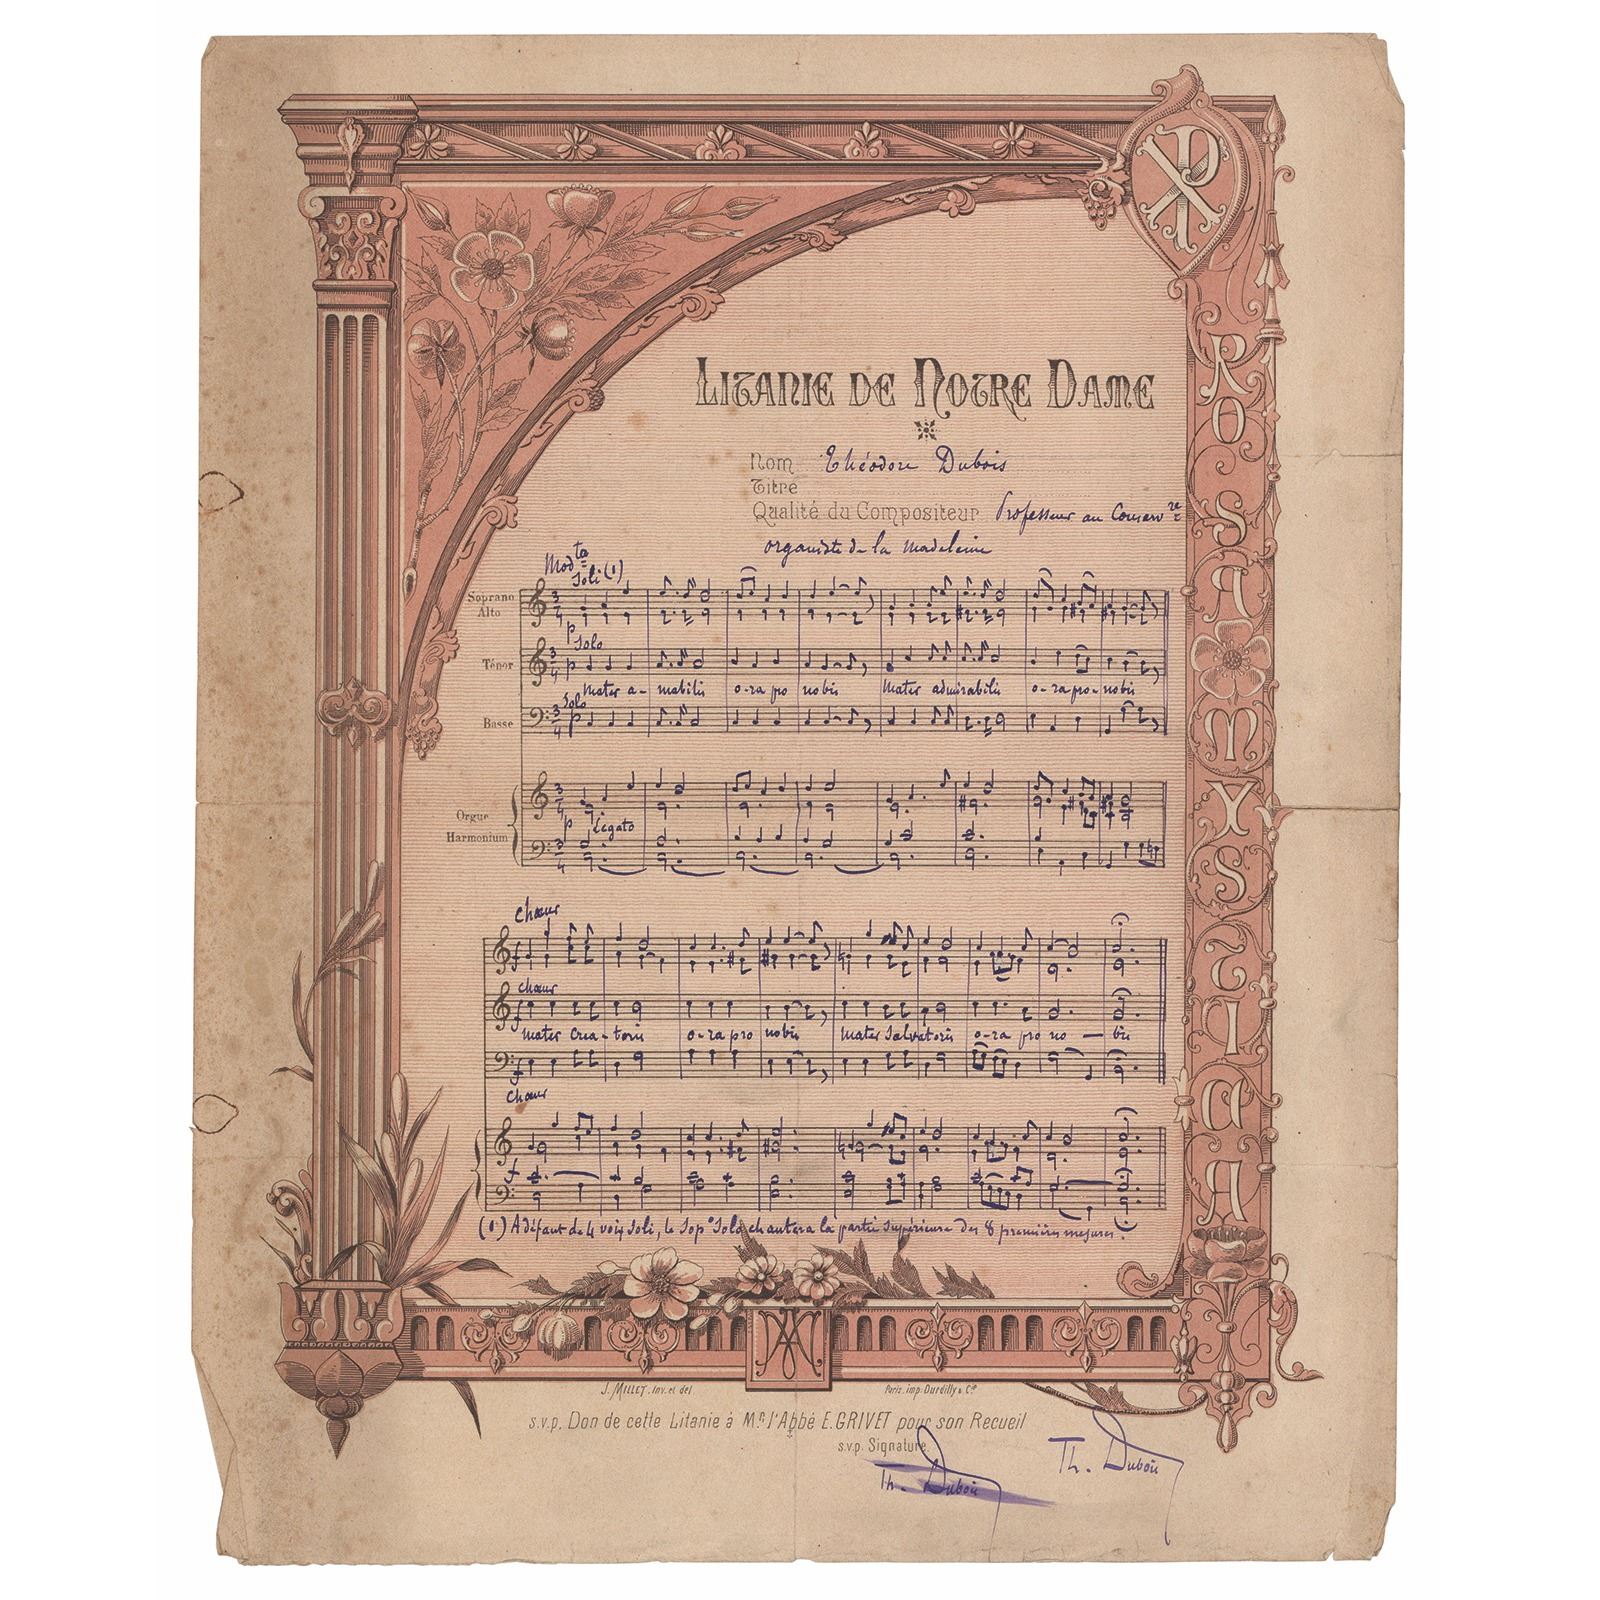 LITANIE DE NOTRE DAME
Nom Théodore Dubois
Titre
Qualité du Compositeur Professeur au Conserv.re
organiste de la Madeleine
ROSA MYSTICA
Mod.to
Soli (1)
Soprano
Alto
p
Solo
Ténor
p
Mater a-mabilis o-ra pro nobis Mater admirabilis o-ra pro-nobis
Solo
Basse
p
Orgue
Harmonium
p Legato
Chœur
f
chœur
f
mater Crea-toris o-ra pro nobis mater Salvatoris o-ra pro no — bis
f
Chœur
f
(1) A défaut de 4 voix Soli, le Sop.o Solo chantera la partie supérieure des 8 premières mesures.
J. MILLET. inv. et del. Paris. imp. Durdilly & Cie
s.v.p. Don de cette Litanie à Mr. l'Abbé E. GRIVET pour son Recueil
s.v.p. Signature.
Th. Dubois
Th. Dubois